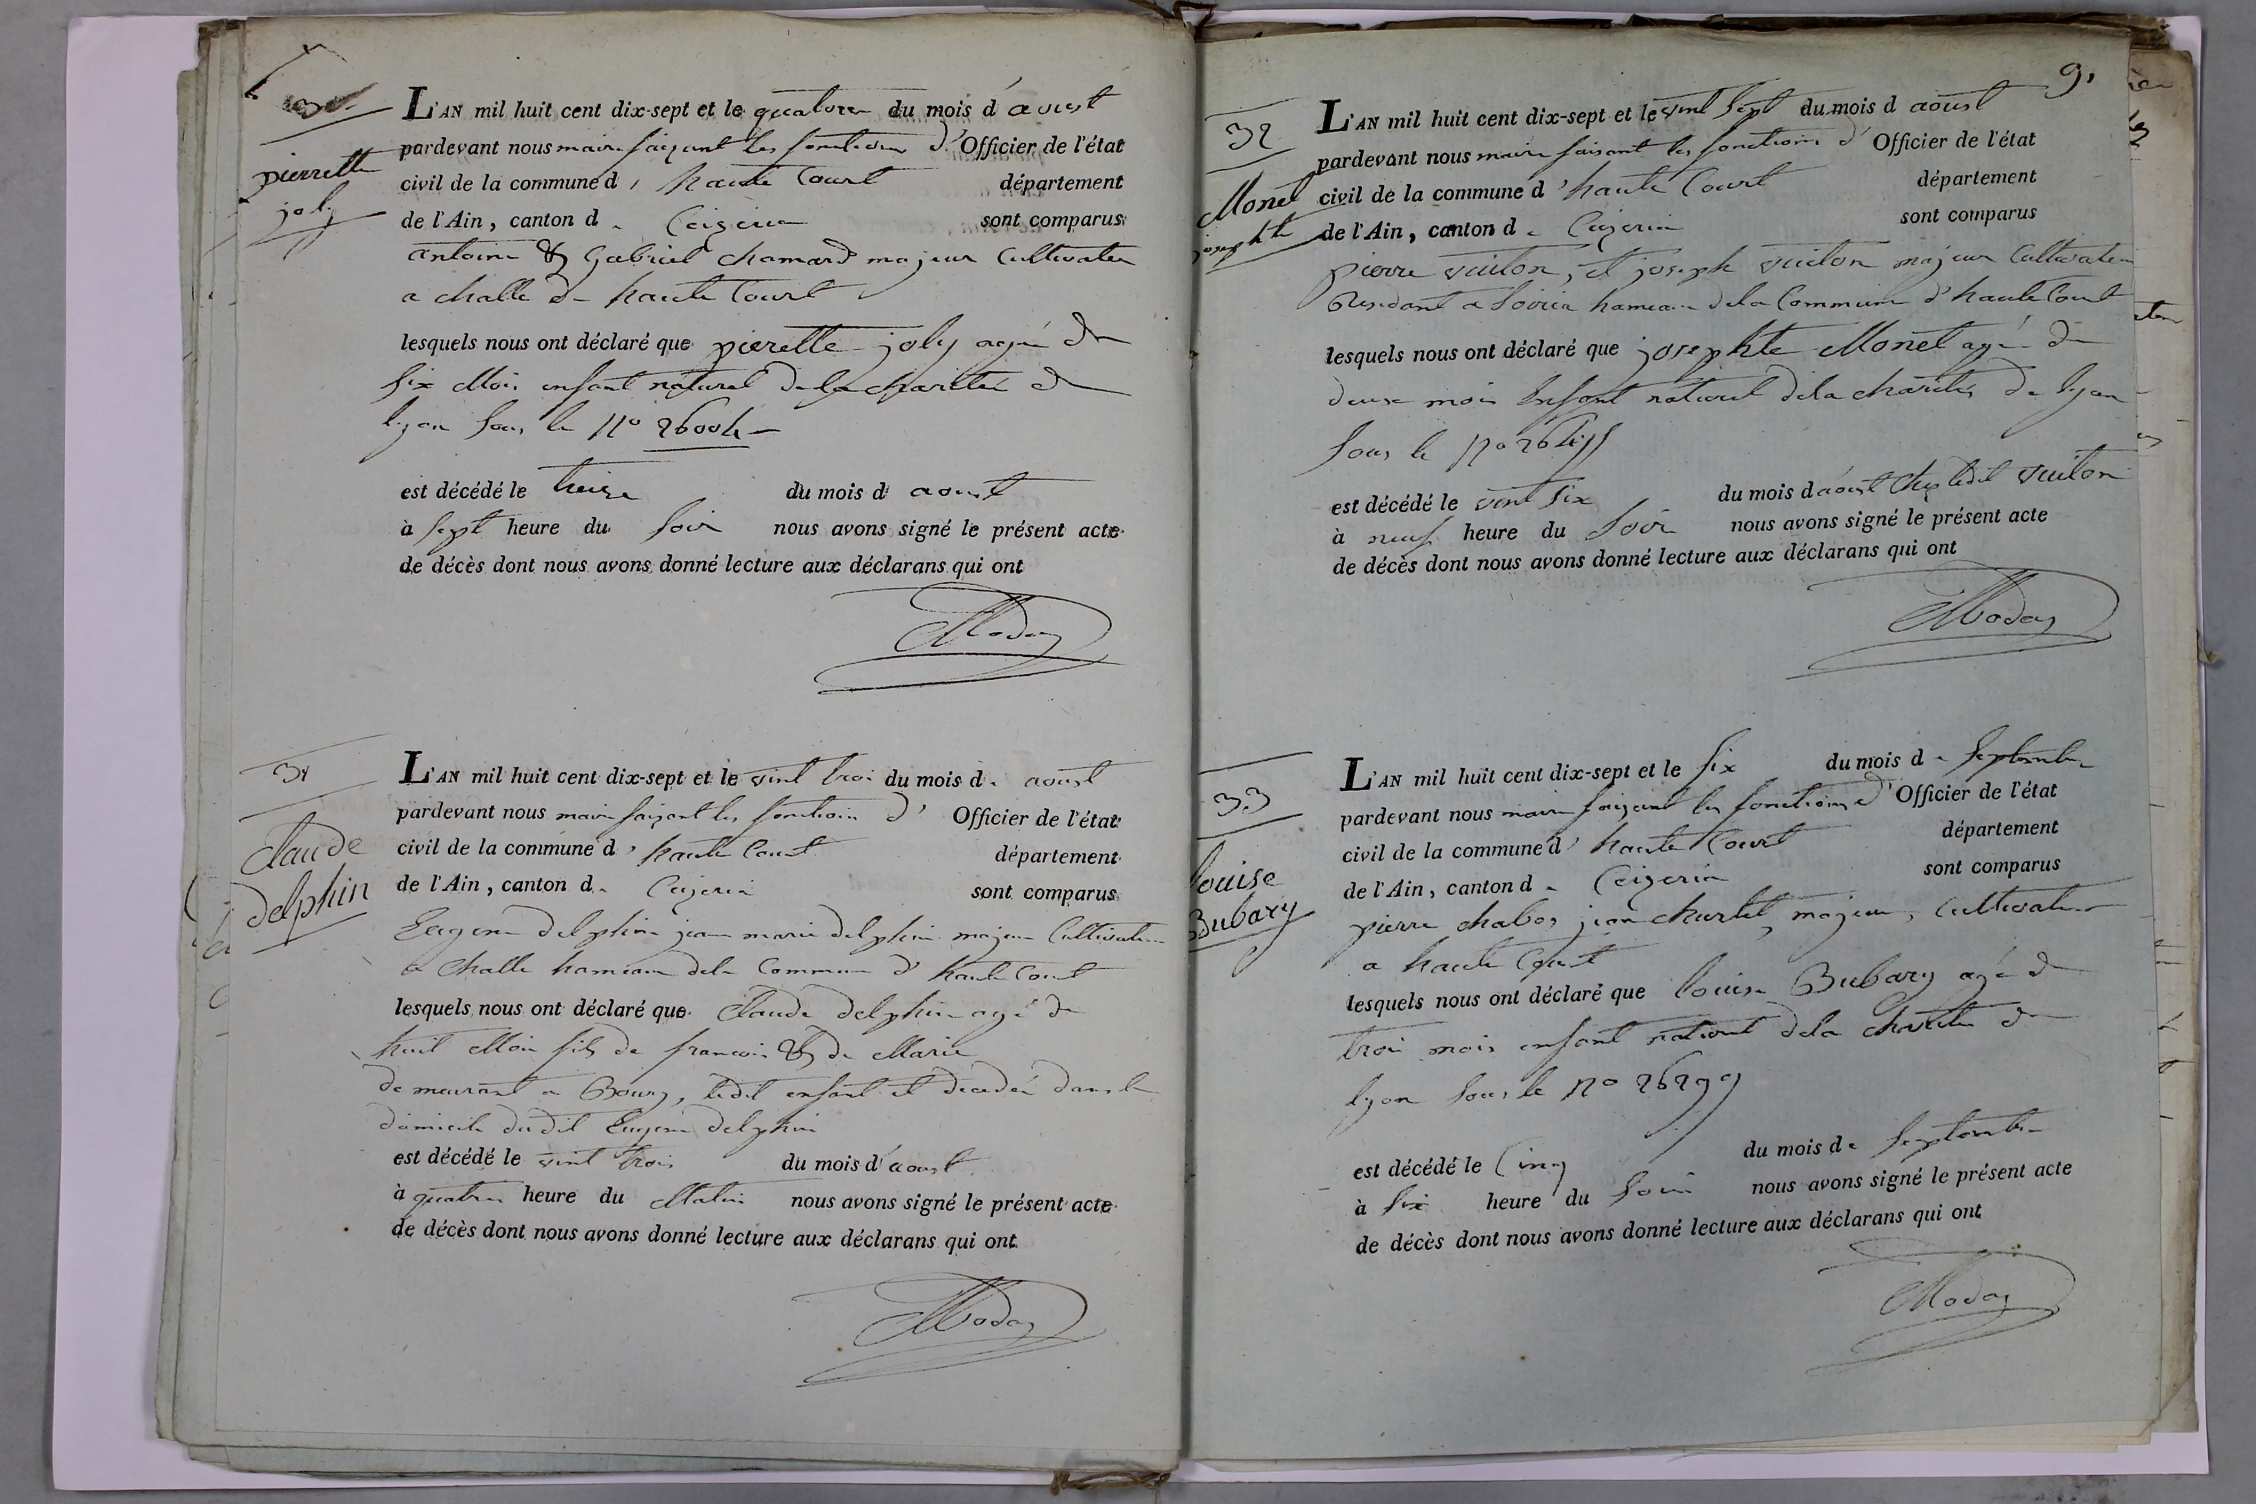 30
pierrette
joly
L'AN mil huit cent dix-sept et le quatorze du mois d'aoust
pardevant nous maire faizant les fonctions d'Officier de l'état
civil de la commune d'haute Court département
de l'Ain, canton de Ceizeria sont comparus
antoine & Gabriel chamard majeur Cultivateur
a challe de haute Court
lesquels nous ont déclaré que pierette joly agé de
six Moi enfant naturel de la charité de
lyon sous le No 26004
est décédé le treize du mois d'aoust
à sept heure du soir nous avons signé le présent acte
de décès dont nous avons donné lecture aux déclarans qui ont
Moday
31
Claude
delphin
L'AN mil huit cent dix-sept et le vint troi du mois d'aoust
pardevant nous maire faizant les fonction d'Officier de l'état
civil de la commune d'haute Court département
de l'Ain, canton de Ceizeria sont comparus
Eugene delphin jean marie delphin majeur Cultivateur
a challe hameau dela Commune d'haute Court
lesquels nous ont déclaré que Claude delphin agé de
huit Moi fils de francois & de Marie
demeurant a Bourg, ledit enfant et décédé dans le
domicile dudit Eugene delphin
est décédé le vint trois du mois d'aoust
à quatre heure du Matin nous avons signé le présent acte
de décès dont nous avons donné lecture aux déclarans qui ont
Moday
9
32
Monet
josephte
L'AN mil huit cent dix-sept et le vint sept du mois d aoust
pardevant nous maire faisant les fonctions d'Officier de l'état
civil de la commune d'haute Court département
de l'Ain, canton de Ceizeria sont comparus
pierre vuiton, et joseph vuiton majeur Cultivateur
Residant a hameau dela Commune d'haute Court
lesquels nous ont déclaré que josephte Monet agé de
deux moi Enfant naturel dela charité de lyon
sous le No
est décédé le vint six du mois d'aoust chez ledit vuiton
à neuf heure du soir nous avons signé le présent acte
de décès dont nous avons donné lecture aux déclarans qui ont
Moday
33
louise
Bubary
L'AN mil huit cent dix-sept et le six du mois de septembre
pardevant nous maire faizant les fonctions d'Officier de l'état
civil de la commune d'haute Court département
de l'Ain, canton de Ceizeria sont comparus
pierre jean majeur, cultivateur
a haute Court
lesquels nous ont déclaré que louise Bubary agé de
troi mois enfant naturel dela charité de
lyon sous le No 26299
est décédé le Cinq du mois de septembre
à six heure du soir nous avons signé le présent acte
de décès dont nous avons donné lecture aux déclarans qui ont
Moday